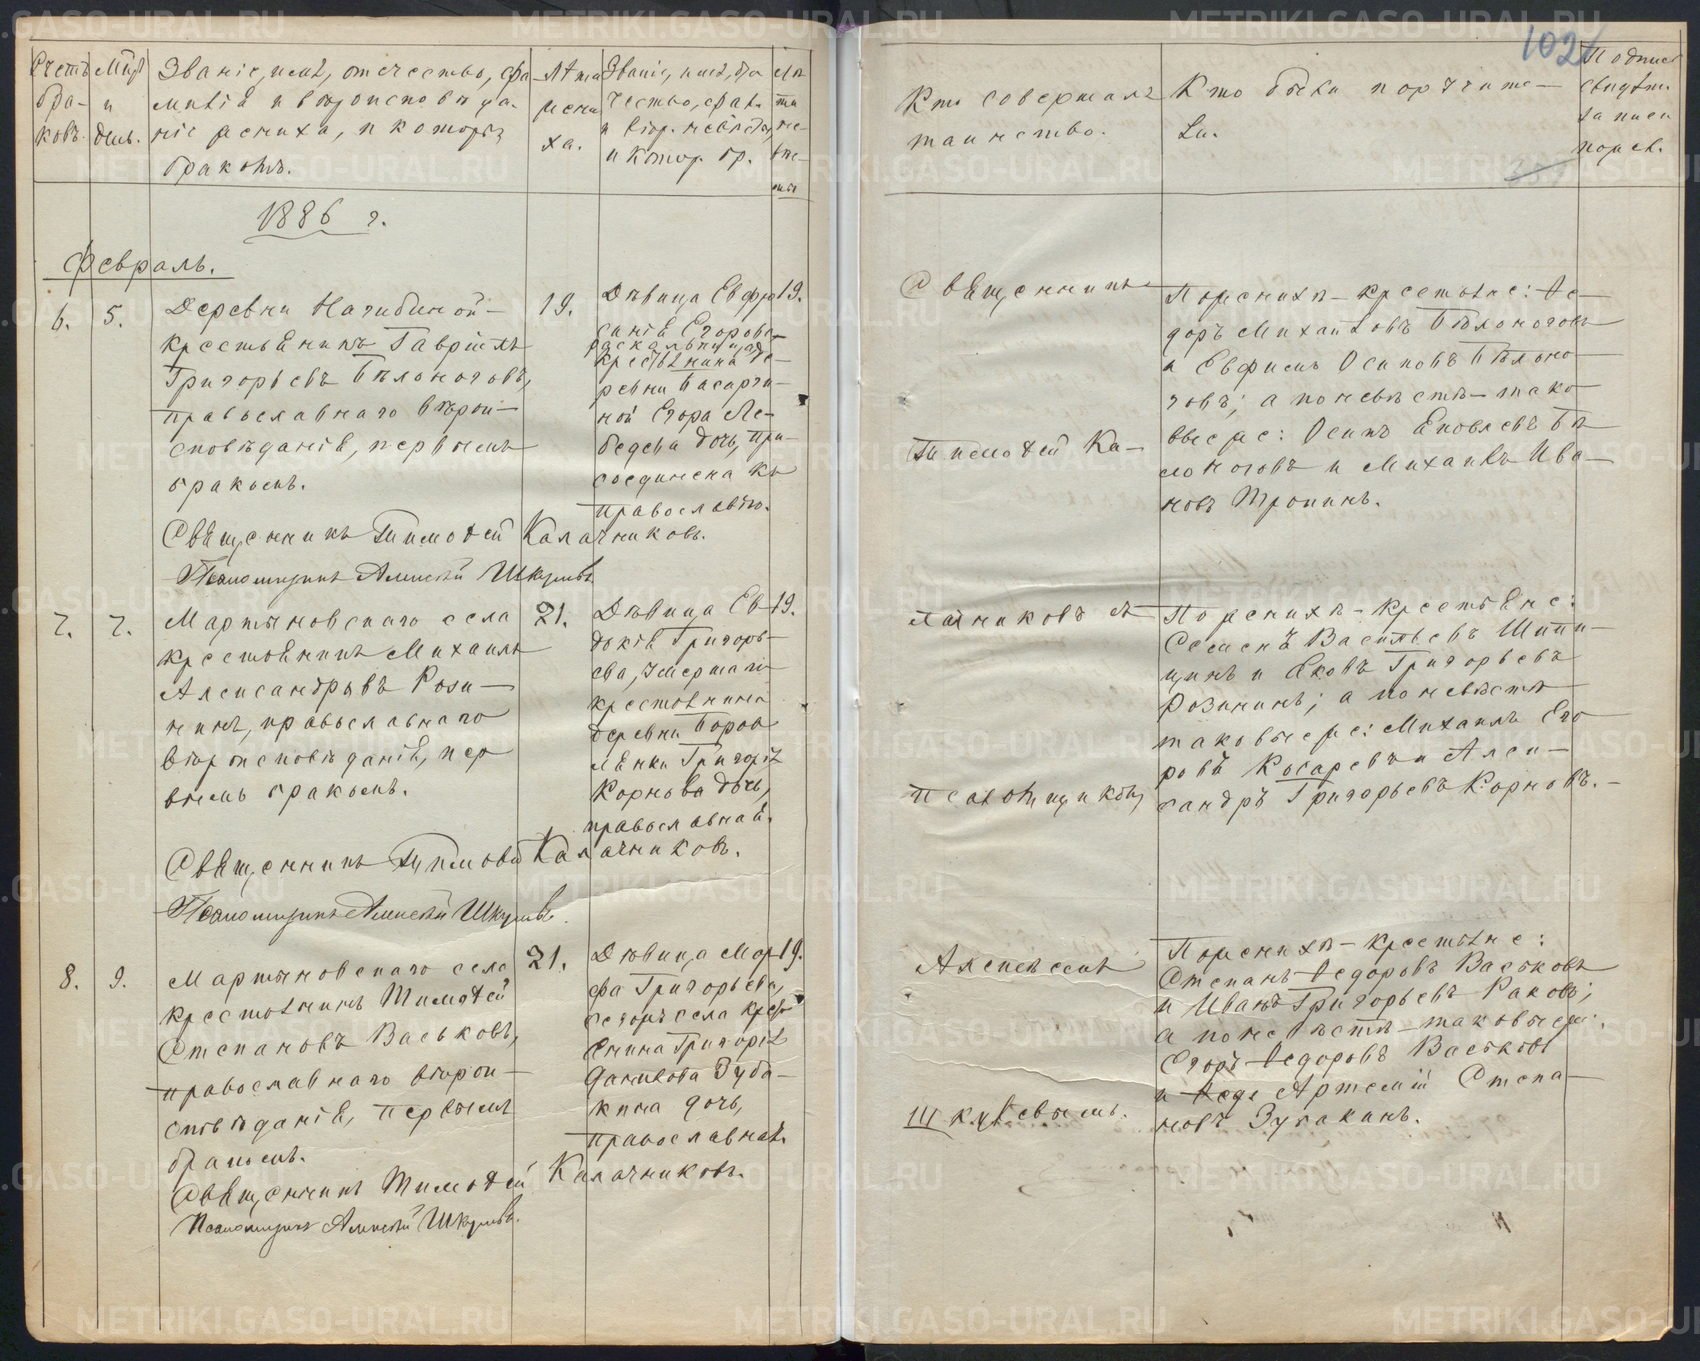 Счетъ бра-ковъ.
Мѣс. и день.
Званіе, имя, отчество, фа-
милія и вѣроисповѣда-
ніе жениха, и которымъ
бракомъ.
Лѣта
жени
ха.
Званіе, имя, от
чество, фам.
и вѣр. невѣсты,
и котор. бр.
Лѣ
та
не-
вѣс-
ты
1886 г.
Февраль.
6.
5.
Деревни Нагибиной-
крестьянинъ Гавріилъ
Григорьевъ Бѣлоноговъ,
православнаго вѣрои-
сповѣданія, первымъ
бракомъ.
19.
Дѣвица Евфро
синія Егорова
раскольница
крестьянина де-
ревни Басарги-
ной Егора Ле-
бедева дочь, при-
соединена къ
православію.
19.
Священникъ Тимофей Калачниковъ.
Псаломщикъ Алексѣй Шкулевъ
7.
7.
Мартыновскаго села
крестьянинъ Михаилъ
Александровъ Рози-
нинъ, православнаго
вѣроисповѣданія, пер
вымъ бракомъ.
21.
Дѣвица Ев
докія Григорь-
ева, умершаго
крестьянина
деревни Боров
лянки Григорія
Корнева дочь,
православная.
19.
Священникъ Тимофей Калачниковъ.
Псаломщикъ Алексѣй Шкулевъ.
8.
9.
Мартыновскаго села
крестьянинъ Тимофей
Степановъ Васьковъ,
православнаго вѣрои-
сповѣданія, первымъ
бракомъ.
21.
Дѣвица Мар
фа Григорьева,
села крест
янина Григорія
Данилова Зуба-
кина дочь,
православная.
19.
Священникъ Тимофей Калачниковъ.
Псаломщикъ Алексѣй Шкулевъ.
102
Кто совершалъ
таинство.
Кто были поручите-
ли.
Подпись
свидѣт.
записи
по ж.
Священникъ
Тимофей Ка-
лачниковъ съ
псаломщикомъ
Алексѣемъ
Шкулевымъ.
По женихѣ - крестьяне: Фе-
доръ Михайловъ Бѣлоноговъ
и Евфимъ Осиповъ Бѣлоно-
говъ; а по невѣстѣ - тако
вые же: Осипъ Яковлевъ Бѣ
лоноговъ и Михаилъ Ива-
новъ Тропинъ.
По женихѣ - крестьяне:
Семенъ Васильевъ Шипи-
цинъ и Яковъ Григорьевъ
Розининъ; а по невѣстѣ
таковые же: Михаилъ Его
ровъ Косаревъ и Алек-
сандръ Григорьевъ Корновъ.
По женихѣ - крестьяне:
Степанъ Федоровъ Васьковъ
и Иванъ Григорьевъ Раковъ;
а по невѣстѣ - таковые же:
Егоръ Федоровъ Васьковъ
и Артемій Степа-
новъ Зубакинъ.
METRIKI.GASO-URAL.RU